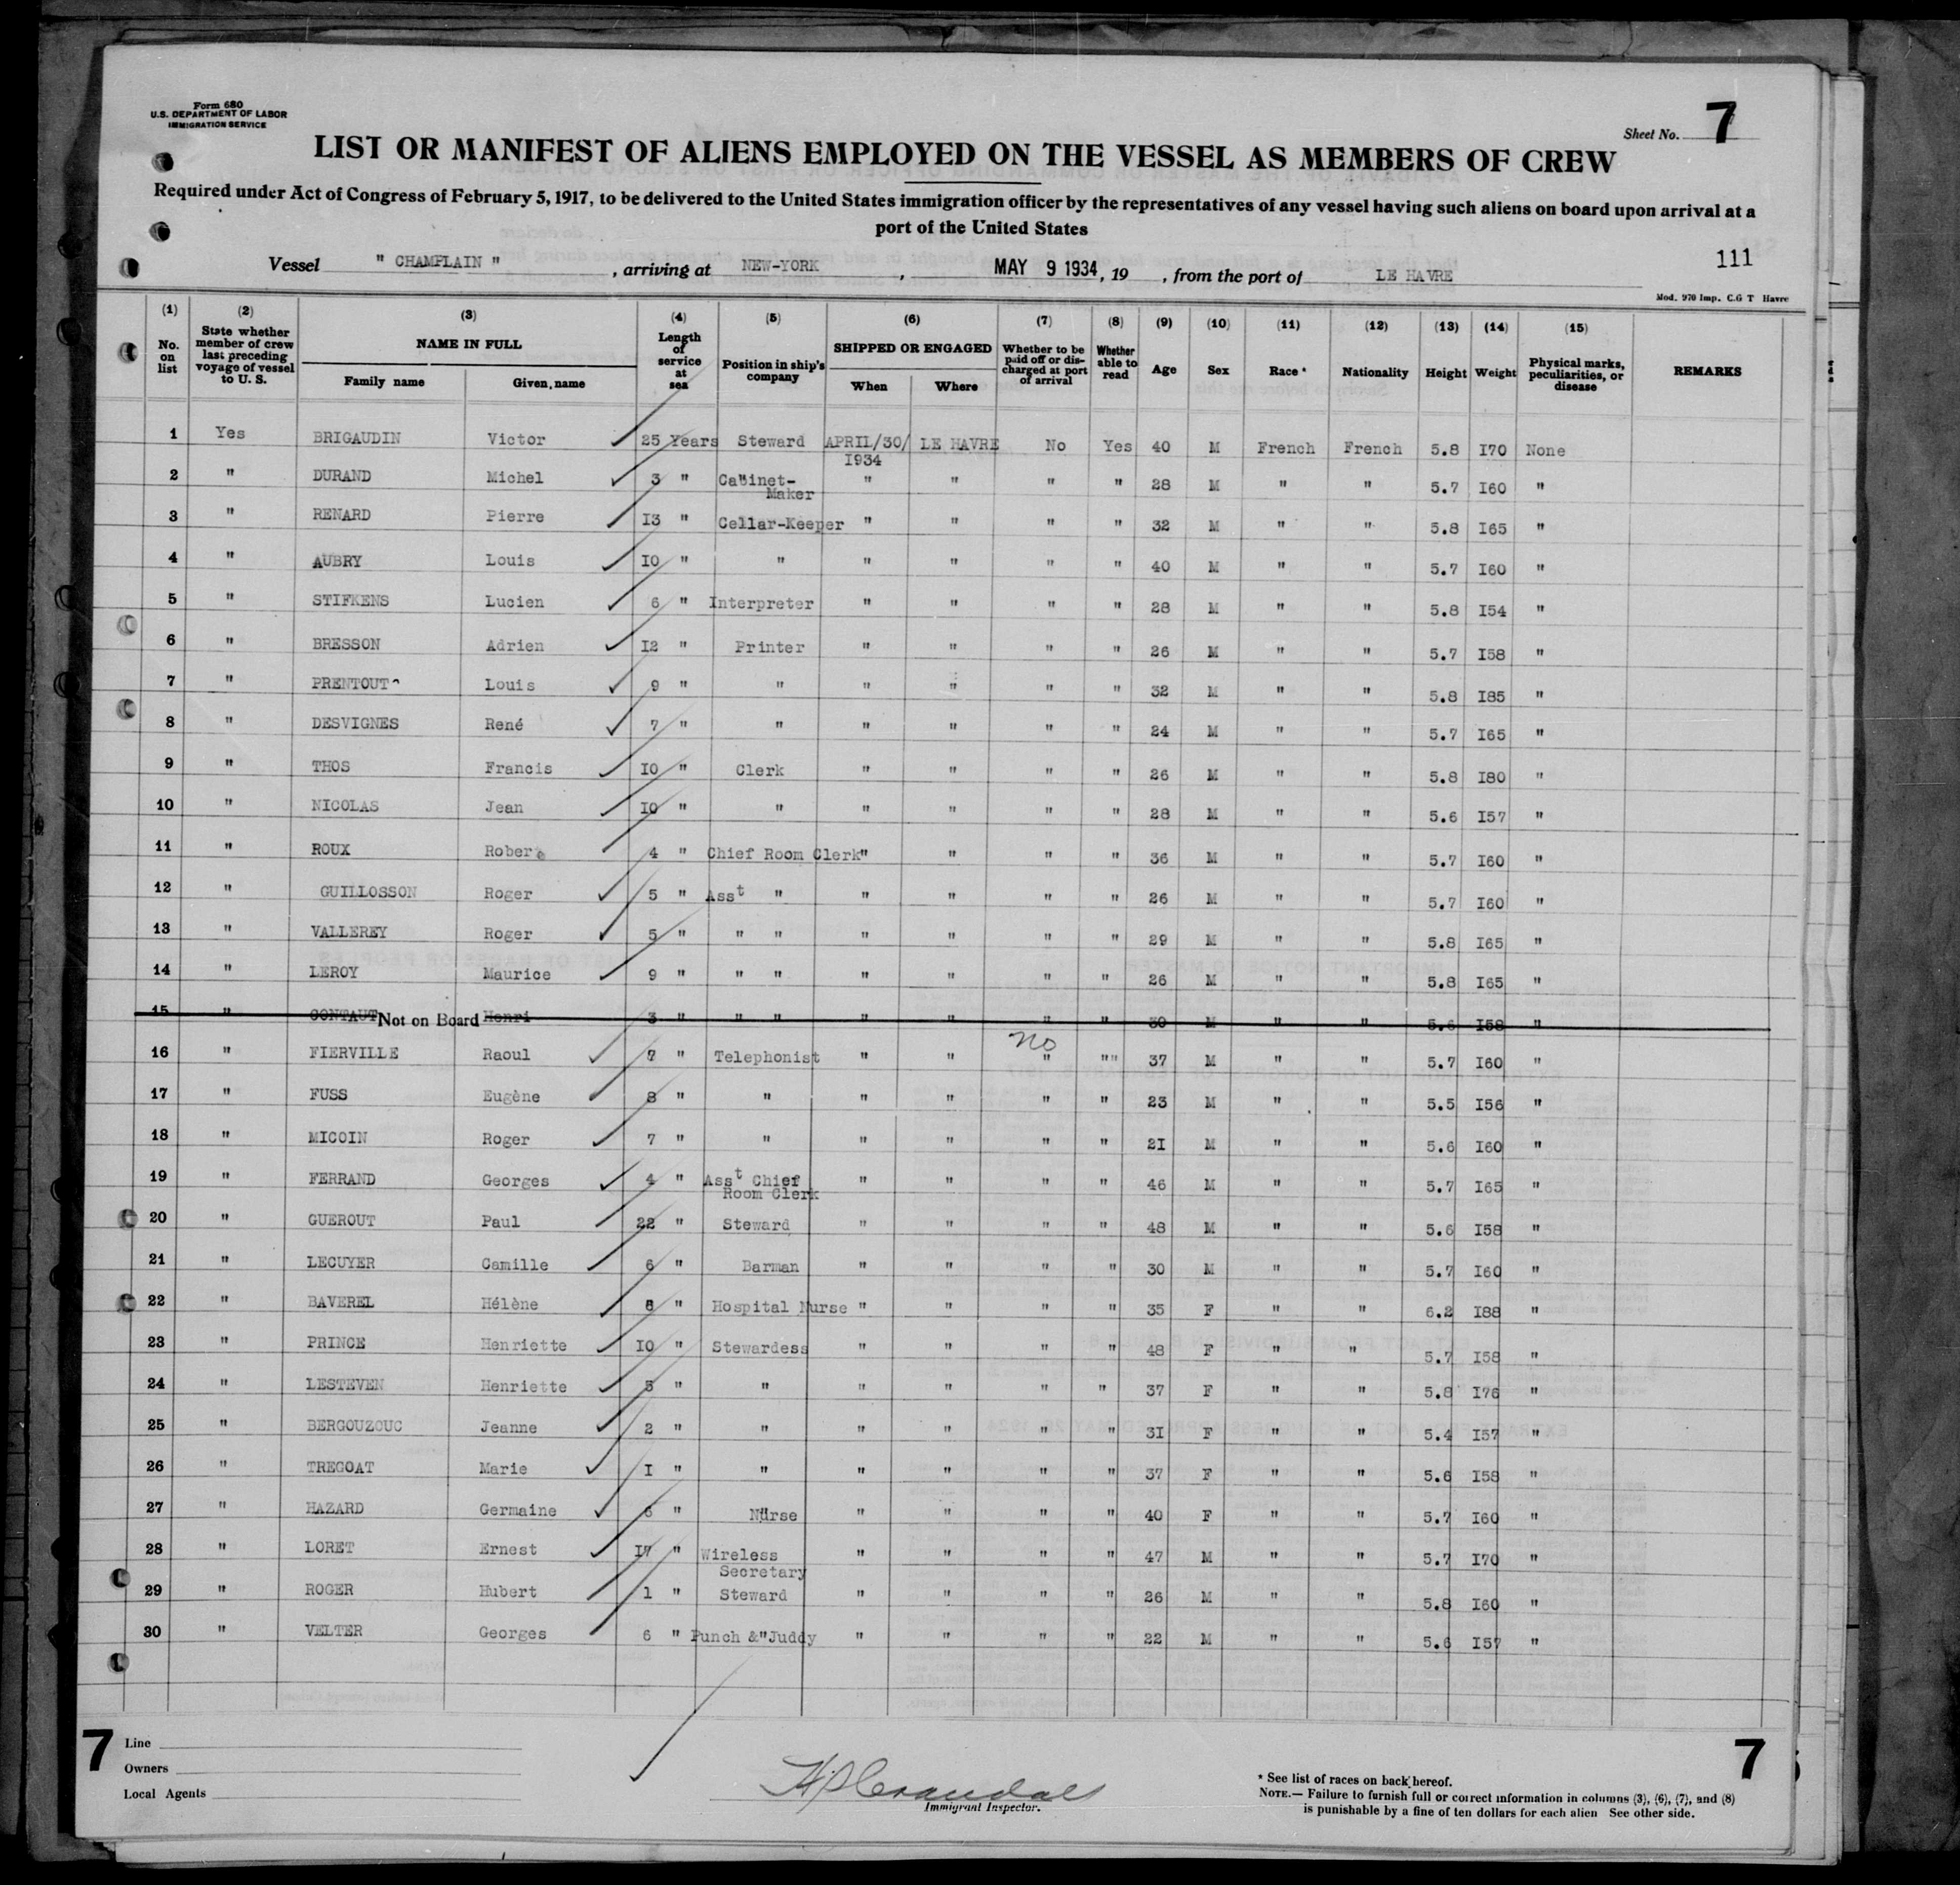 Form 680
U.S. DEPARTMENT OF LABOR
IMMIGRATION SERVICE
Sheet No. 7
LIST OR MANIFEST OF ALIENS EMPLOYED ON THE VESSEL AS MEMBERS OF CREW
Required under Act of Congress of February 5, 1917, to be delivered to the United States immigration officer by the representatives of any vessel having such aliens on board upon arrival at a
port of the United States
111
Vessel " CHAMPLAIN " , arriving at NEW-YORK , MAY 9 1934, 19 , from the port of LE HAVRE
Mod. 970 Imp. C.G T Havre
(1) (2) (3) (4) (5) (6) (7) (8) (9) (10) (11) (12) (13) (14) (15)
No. on list State whether member of crew last preceding voyage of vessel to U. S. NAME IN FULL Family name Given name Length of service at sea Position in ship's company SHIPPED OR ENGAGED When Where Whether to be paid off or discharged at port of arrival Whether able to read Age Sex Race * Nationality Height Weight Physical marks, peculiarities, or disease REMARKS
1 Yes BRIGAUDIN Victor 25 Years Steward APRIL/30/ 1934 LE HAVRE No Yes 40 M French French 5.8 I70 None
2 " DURAND Michel 3 " Cabinet-Maker " " " " 28 M " " 5.7 I60 "
3 " RENARD Pierre I3 " Cellar-Keeper " " " " 32 M " " 5.8 I65 "
4 " AUBRY Louis IO " " " " " " 40 M " " 5.7 I60 "
5 " STIFKENS Lucien 6 " Interpreter " " " " 28 M " " 5.8 I54 "
6 " BRESSON Adrien I2 " Printer " " " " 26 M " " 5.7 I58 "
7 " PRENTOUT^ Louis 9 " " " " " " 32 M " " 5.8 I85 "
8 " DESVIGNES René 7 " " " " " " 24 M " " 5.7 I65 "
9 " THOS Francis IO " Clerk " " " " 26 M " " 5.8 I80 "
10 " NICOLAS Jean IO " " " " " " 28 M " " 5.6 I57 "
11 " ROUX Robert 4 " Chief Room Clerk " " " " 36 M " " 5.7 I60 "
12 " GUILLOSSON Roger 5 " Asst " " " " " 26 M " " 5.7 I60 "
13 " VALLEREY Roger 5 " " " " " " " 29 M " " 5.8 I65 "
14 " LEROY Maurice 9 " " " " " " " 26 M " " 5.8 I65 "
15 " CONTAUT Not on Board Henri 3 " " " " " " " 30 M " " 5.6 I58 "
16 " FIERVILLE Raoul 7 " Telephonist " " No " "" 37 M " " 5.7 I60 "
17 " FUSS Eugène 8 " " " " " " 23 M " " 5.5 I56 "
18 " MICOIN Roger 7 " " " " " " 2I M " " 5.6 I60 "
19 " FERRAND Georges 4 " Asst Chief Room Clerk " " " " 46 M " " 5.7 I65 "
20 " GUEROUT Paul 22 " Steward " " " " 48 M " " 5.6 I58 "
21 " LECUYER Camille 6 " Barman " " " " 30 M " " 5.7 I60 "
22 " BAVEREL Hélène 8 " Hospital Nurse " " " " 35 F " " 6.2 I88 "
23 " PRINCE Henriette IO " Stewardess " " " " 48 F " " 5.7 I58 "
24 " LESTEVEN Henriette 5 " " " " " " 37 F " " 5.8 I76 "
25 " BERGOUZOUC Jeanne 2 " " " " " " 3I F " " 5.4 I57 "
26 " TREGOAT Marie I " " " " " " 37 F " " 5.6 I58 "
27 " HAZARD Germaine 6 " Nurse " " " " 40 F " " 5.7 I60 "
28 " LORET Ernest I7 " Wireless Secretary " " " " 47 M " " 5.7 I70 "
29 " ROGER Hubert 1 " Steward " " " " 26 M " " 5.8 I60 "
30 " VELTER Georges 6 " Punch &"Juddy " " " " 22 M " " 5.6 I57 "
7
Line
Owners
Local Agents
Immigrant Inspector.
7
* See list of races on back hereof.
NOTE.— Failure to furnish full or correct information in columns (3), (6), (7), and (8)
is punishable by a fine of ten dollars for each alien See other side.